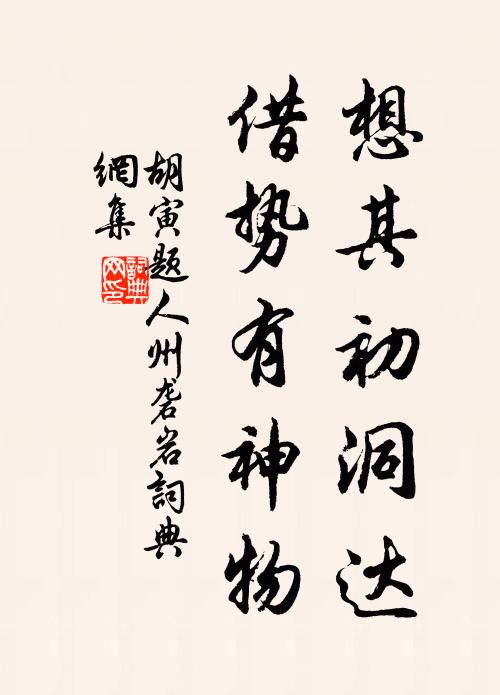 想其初洞达
借势有神物
胡寅题人州砻岩詞典
網集
詞典
网印